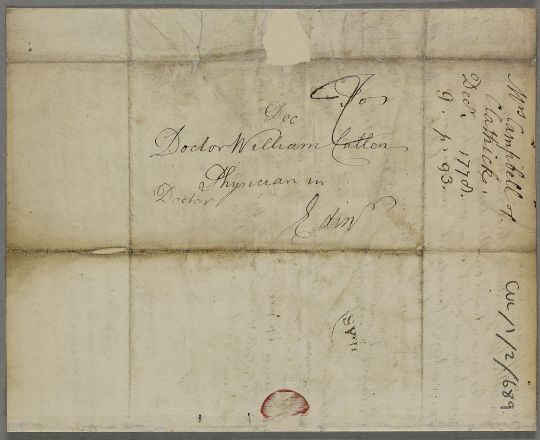 To
Doc
Doctor William Cullen
Physician in
Doctor
Edinr
Mrs Campbell of
Clathick.
Decr. 1778.
9. p. 93.
CUL/1/2/689